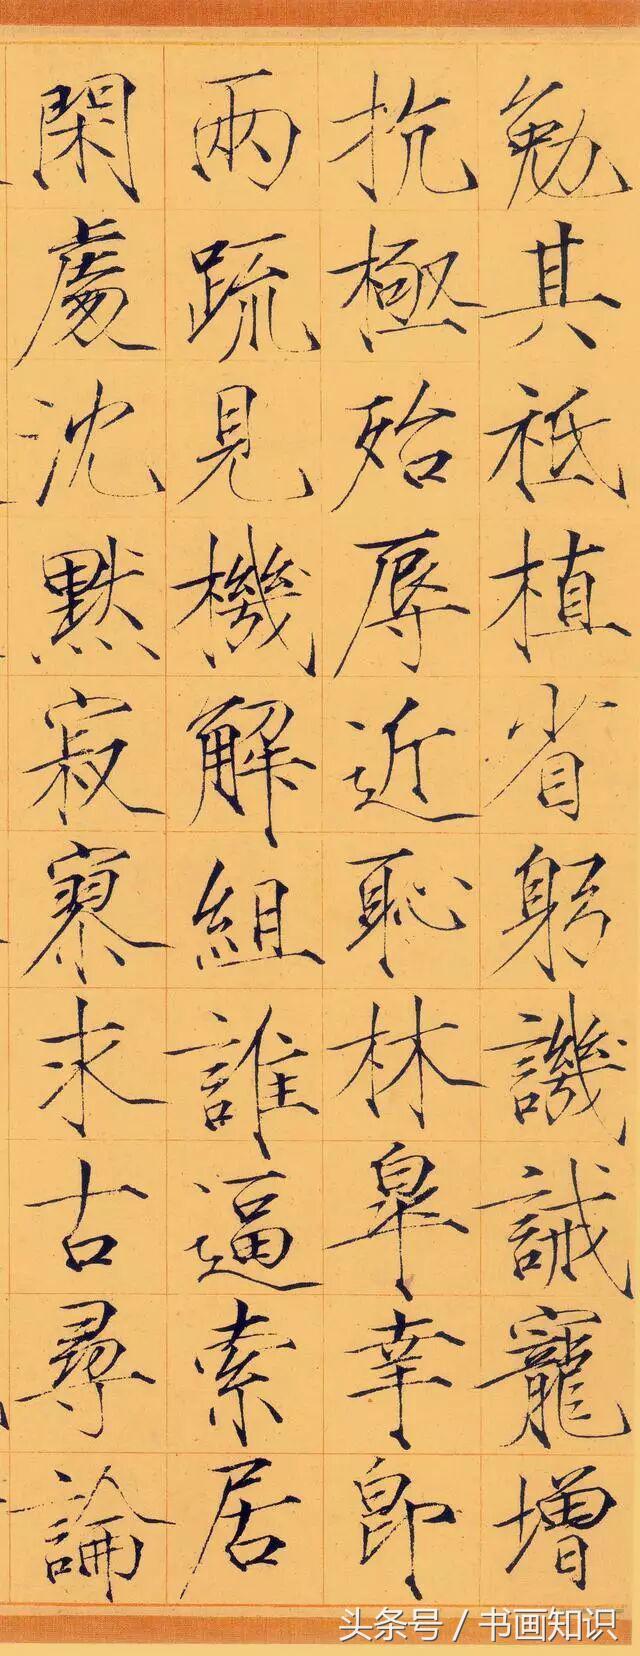 勉其祗植省躬譏誡寵增
抗極殆辱近恥林皋幸即
兩疏見機解組誰逼索居
閑處沈默寂寥求古尋論
头条号 / 书画知识